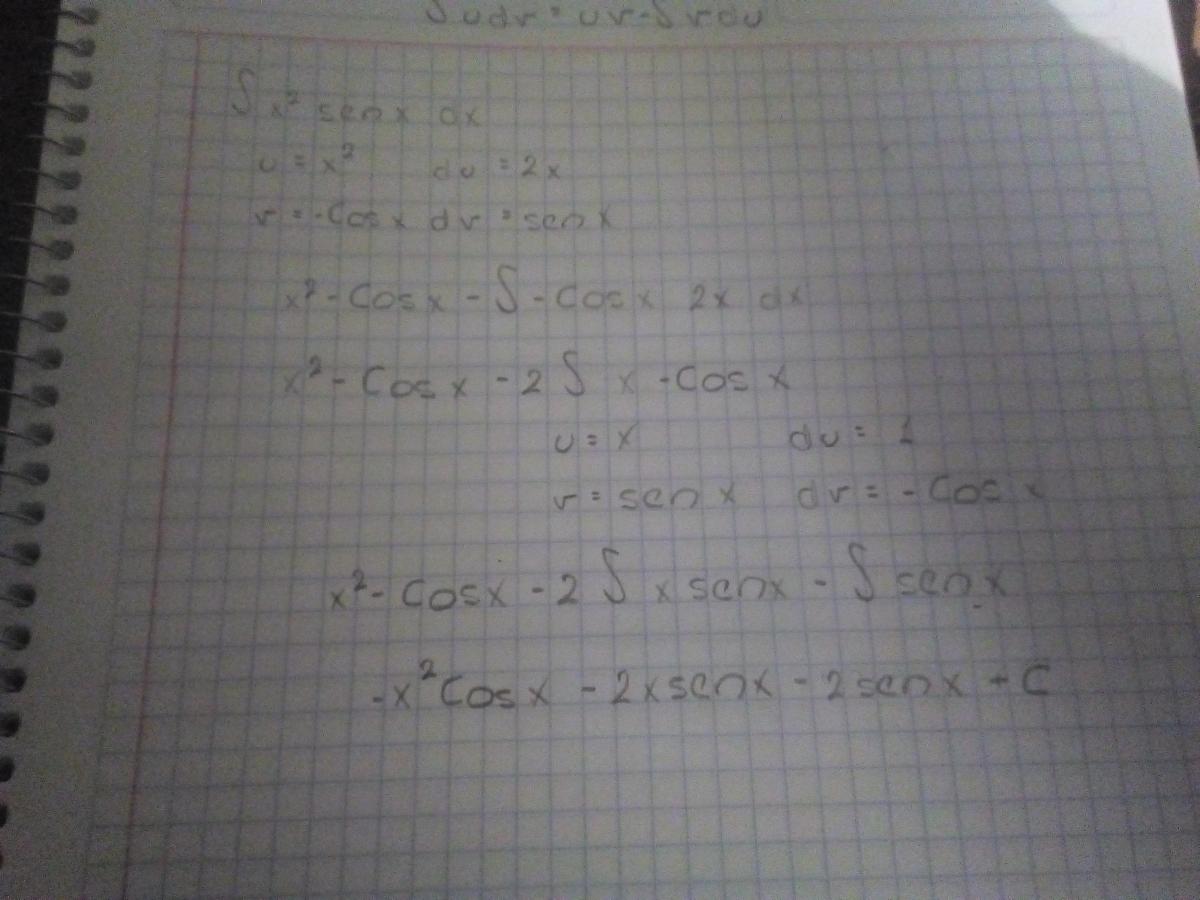 ∫ u dv = uv - ∫ v du
∫ x² sen x dx
u = x² du = 2x
v = -Cos x dv = sen x
x² - Cos x - ∫ - Cos x 2x dx
x² - Cos x - 2 ∫ x - Cos x
u = x du = 1
v = sen x dv = - Cos x
x² - Cos x - 2 ∫ x sen x - ∫ sen x
-x² Cos x - 2x sen x - 2 sen x + C